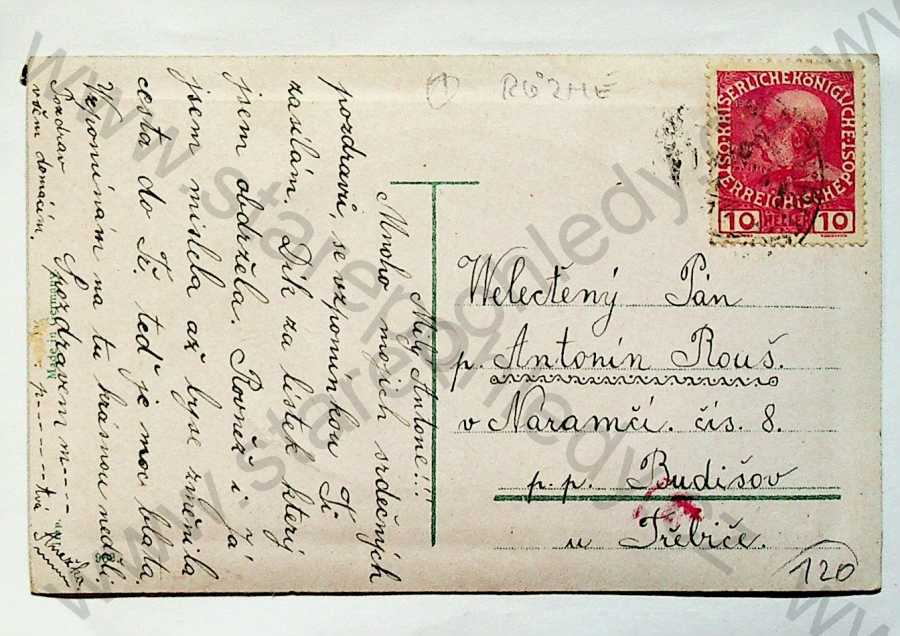 RŮZNÉ
KAISERLICHE KÖNIGLICHE
ÖSTERREICHISCHE POST
10 HELLER 10
Welectěný Pán
p. Antonín Rouš.
v Naramčí. čís. 8.
p. p. Budišov
u Třebiče.
120
Milý Antone!!
Mnoho mojich srdečných
pozdravů, se vzpomínkou Ti
zasílám. Dík za lístek který
jsem obdržela. Rovněž i já
jsem myslela až byse změnila
cesta do Tř. teď je moc blata.
Vzpomínám na tu krásnou neděli.
S pozdravem m----
p------- tvá Anežka.
Pozdrav
všem domácím.
www.starepohledy.cz